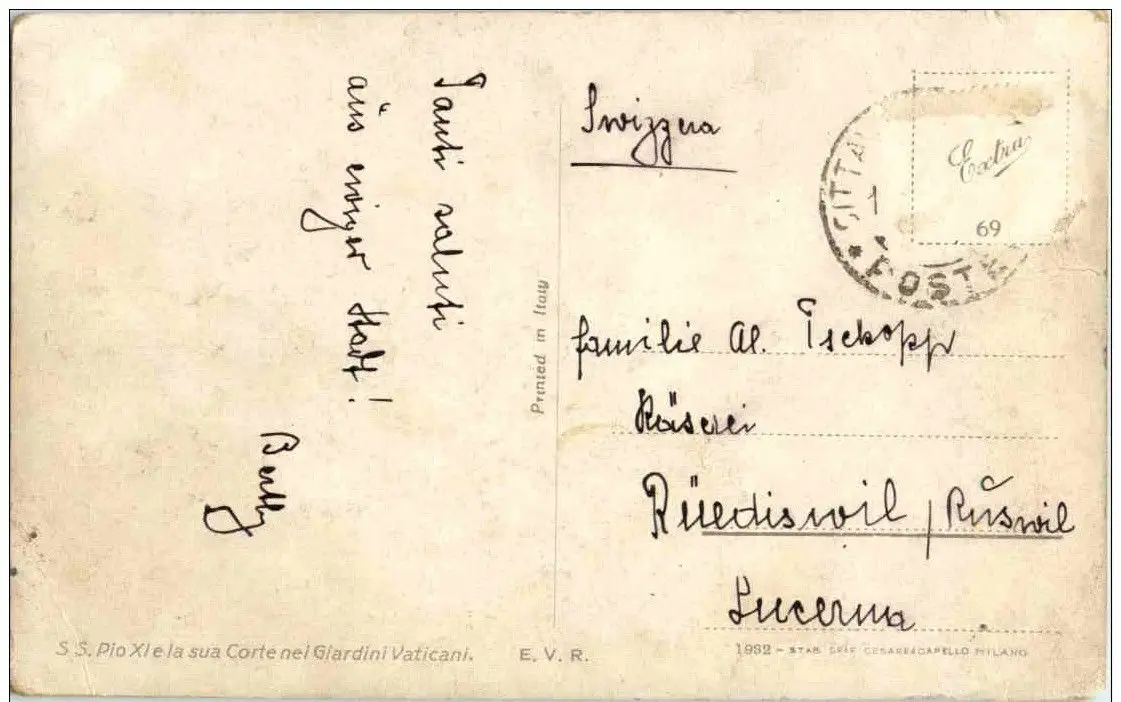 Tanti saluti
aus ewiger Stadt!
Berthy
Printed in Italy
Svizzera
CITTA
1
POST
Extra
69
familie Al. Tschopp
Käserei
Rüediswil / Rŭswil
Lucerna
S.S. Pio XI e la sua Corte nei Giardini Vaticani.
E. V. R.
1932 - STAB. GRAF. CESARE CAPELLO MILANO